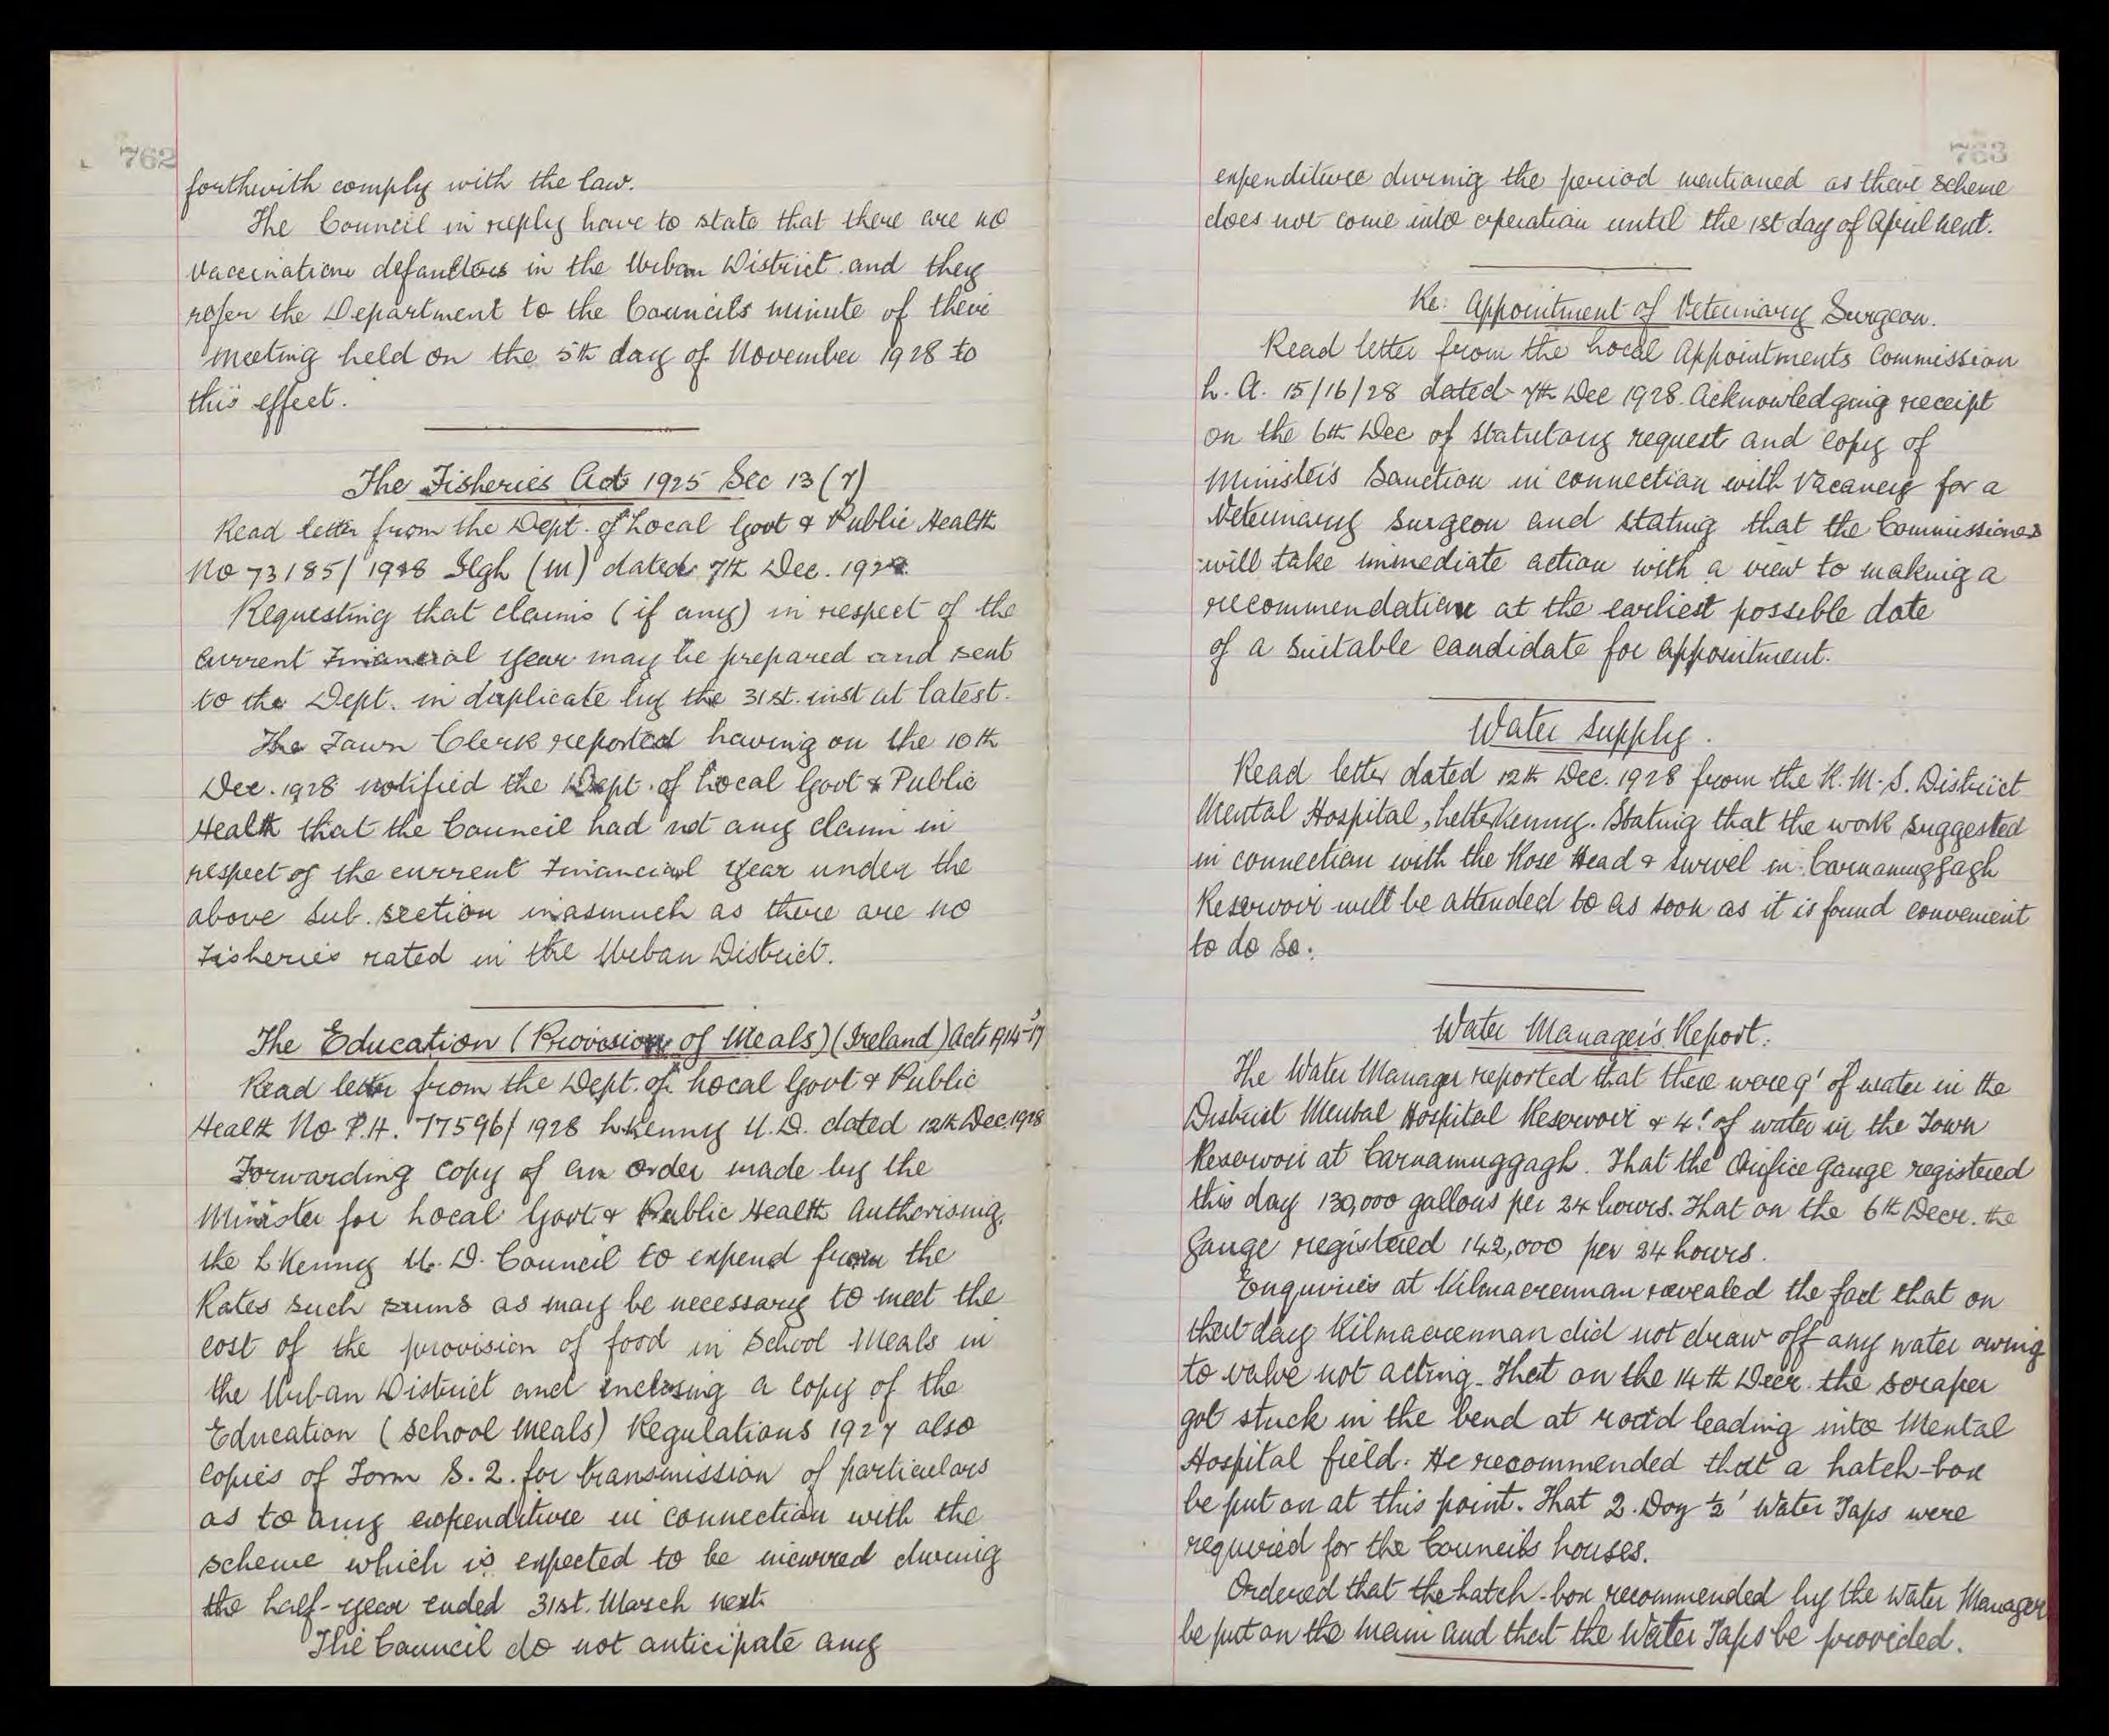 762
forthwith comply with the law.
The Council in reply have to state that there are no
vaccination defaulters in the Urban District and they
refer the Department to the Councils minute of their
meeting held on the 5th day of November 1928 to
this effect.
The Fisheries Act 1925 Sec 13 (7)
Read letter from the Dept. of Local Govt & Public Health
No 73185/1928 (M) dated 7th Dec. 1928
Requesting that claims (if any) in respect of the
current Financial year may be prepared and sent
to the Dept. in duplicate by the 31st. inst at latest.
The Town Clerk reported having on the 10th
Dec. 1928 notified the Dept. of Local Govt & Public
Health that the Council had not any claim in
respect of the current Financial year under the
above Sub. section inasmuch as there are no
Fisheries rated in the Urban District.
The Education (Provision of Meals) (Ireland) Acts 1914-17
Read letter from the Dept. of Local Govt & Public
Health No P.H. 77596/1928 LKenny U.D. dated 12th Dec. 1928
Forwarding copy of an order made by the
Minister for Local Govt & Public Health Authorising
the LKenny U.D. Council to expend from the
Rates such sums as may be necessary to meet the
cost of the provision of food in School Meals in
the Urban District and inclosing a copy of the
Education (School Meals) Regulations 1927 also
copies of Form S.2. for transmission of particulars
as to any expenditure in connection with the
scheme which is expected to be incurred during
the half-year ended 31st. March next.
The Council do not anticipate any
763
expenditure during the period mentioned as their scheme
does not come into operation until the 1st day of April next.
Re: Appointment of Veterinary Surgeon.
Read letter from the Local Appointments Commission
L.A. 15/16/28 dated 7th Dec 1928. Acknowledging receipt
on the 6th Dec of statutory request and copy of
Ministers Sanction in connection with Vacancy for a
Veterinary Surgeon and stating that the Commissioners
will take immediate action with a view to making a
recommendation at the earliest possible date
of a suitable candidate for appointment.
Water Supply.
Read letter dated 12th Dec. 1928 from the R.M.S. District
Mental Hospital, Letterkenny. Stating that the work suggested
in connection with the Rose Head & swivel in Carnamuggagh
Reservoir will be attended to as soon as it is found convenient
to do so.
Water Manager's Report.
The Water Manager reported that there were 9' of water in the
District Mental Hospital Reservoir & 4' of water in the Town
Reservoir at Carnamuggagh. That the Orifice Gauge registered
this day 130,000 gallons per 24 hours. That on the 6th Decr. the
Gauge registered 142,000 per 24 hours.
Enquiries at Kilmacrennan revealed the fact that on
that day Kilmacrennan did not draw off any water owing
to valve not acting. That on the 14th Decr. the scraper
got stuck in the bend at road leading into Mental
Hospital field. He recommended that a hatch-box
be put on at this point. That 2 Doz ½' Water Taps were
required for the Councils houses.
Ordered that the hatch-box recommended by the Water Manager
be put on the main and that the Water Taps be provided.